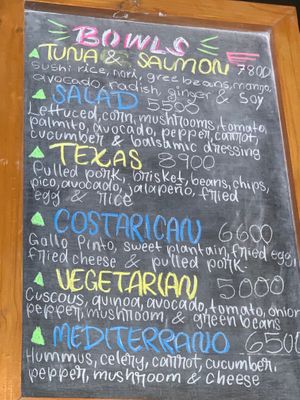 BOWLS
TUNA & SALMON 7800
Sushi rice, nori, greebeans, mango,
avocado, radish, ginger & soy
SALAD 5500
Lettuced, corn, mushrooms, tomato,
palmito, avocado, pepper, carrot,
cucumber & balsamic dressing
TEXAS 8900
Pulled pork, brisket, beans, chips,
pico, avocado, jalapeño, fried
egg & rice
COSTARICAN 6600
Gallo Pinto, sweet plantain, fried egg,
fried cheese & pulled pork.
VEGETARIAN 5000
Cuscous, quinoa, avocado, tomato, onion
pepper, mushroom & green beans
MEDITERRANO 6500
Hummus, celery, carrot, cucumber,
pepper, mushroom & cheese